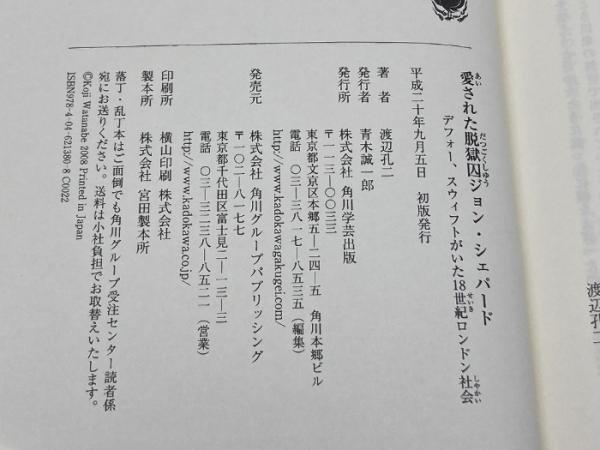 愛された脱獄囚ジョン・シェパード
デフォー、スウィフトがいた18世紀ロンドン社会
平成二十年九月五日　初版発行
著　者　渡辺孔二
発行者　青木誠一郎
発行所　株式会社 角川学芸出版
〒一一三-〇〇三三
東京都文京区本郷五-二四-五　角川本郷ビル
電話　〇三-三八一七-八五三五（編集）
http://www.kadokawagakugei.com/
発売元　株式会社 角川グループパブリッシング
〒一〇二-八一七七
東京都千代田区富士見二-一三-三
電話　〇三-三二三八-八五二一（営業）
http://www.kadokawa.co.jp/
印刷所　横山印刷 株式会社
製本所　株式会社 宮田製本所
落丁・乱丁本はご面倒でも角川グループ受注センター読者係
宛にお送りください。送料は小社負担でお取替えいたします。
©Koji Watanabe 2008 Printed in Japan
ISBN978-4-04-621380-8 C0022
渡辺孔二